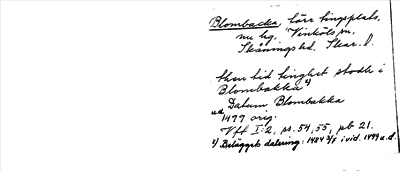 Blombacka, förr tingsplats,
nu bg, Vinköls sn,
Skånings hd. Skar. l.
then tid tinghet stodh i
Blombakka 1)
Datum Blombakka
1477 orig.
Vft I:2, ss. 54, 55, pb 21.
1) Beläggets datering: 1484 3/5 i vid. 1499 u.d.